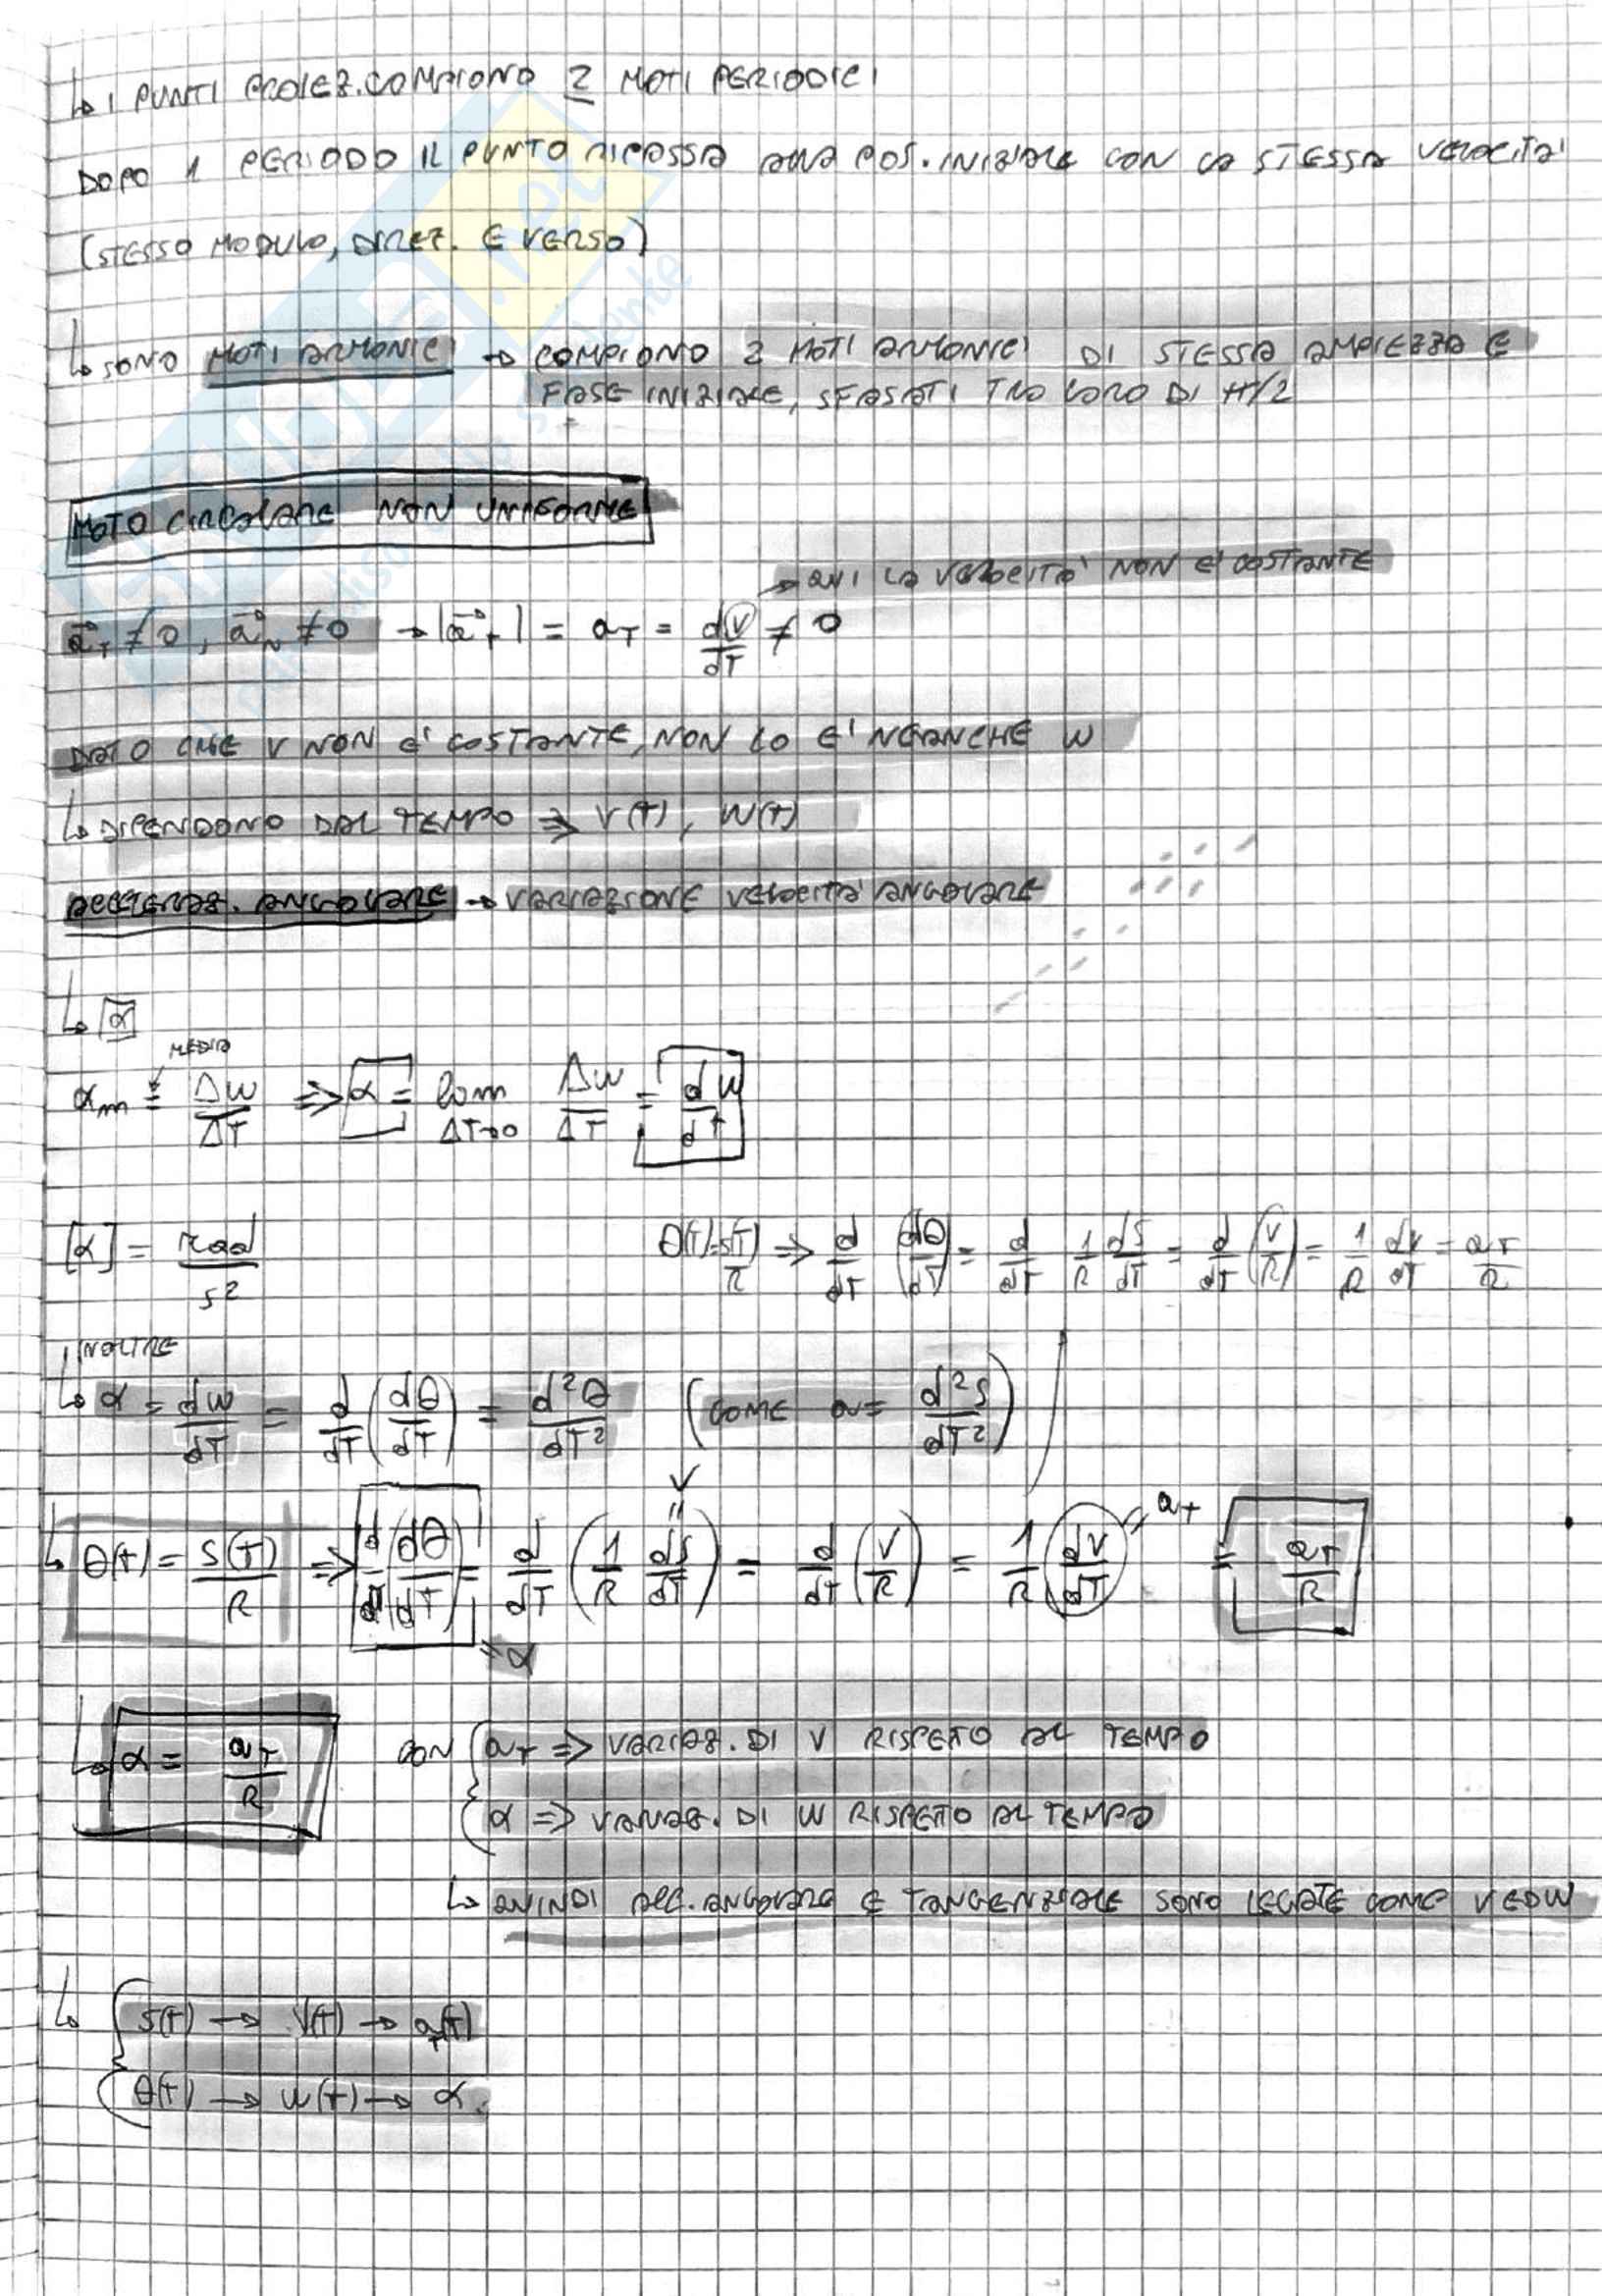 ↳ I PUNTI PROIEZ. COMPIONO 2 MOTI PERIODICI
DOPO 1 PERIODO IL PUNTO RIPASSA ALLA POS. INIZIALE CON LA STESSA VELOCITA'
(STESSO MODULO, DIREZ. E VERSO)
↳ SONO MOTI ARMONICI → COMPIONO 2 MOTI ARMONICI DI STESSA AMPIEZZA E
FASE INIZIALE, SFASATI TRA LORO DI π/2
MOTO CIRCOLARE NON UNIFORME
→ QUI LA VELOCITA' NON E' COSTANTE
a⃗_T ≠ 0, a⃗_N ≠ 0 → |a⃗_T| = a_T = dV/dT ≠ 0
DATO CHE V NON E' COSTANTE, NON LO E' NEANCHE W
↳ DIPENDONO DAL TEMPO ⇒ V(t), W(t)
ACCELERAZ. ANGOLARE → VARIAZIONE VELOCITA' ANGOLARE
↳ α
MEDIA
α_m = ΔW/ΔT ⇒ α = lim ΔT→0 ΔW/ΔT = dW/dt
[α] = rad/s²
θ(T) = S(T)/R ⇒ d/dT (dθ/dT) = d/dT 1/R dS/dT = d/dT (V/R) = 1/R dV/dT = a_T/R
INOLTRE
↳ α = dW/dT = d/dT (dθ/dT) = d²θ/dT² (COME a = d²S/dT²)
V
=
↳ θ(t) = S(T)/R ⇒ d/dT (dθ/dT) = d/dT (1/R dS/dT) = d/dT (V/R) = 1/R (dV/dT) = a_T = a_T/R
= α
↳ α = a_T/R CON { a_T ⇒ VARIAZ. DI V RISPETTO AL TEMPO
α ⇒ VARIAZ. DI W RISPETTO AL TEMPO
↳ QUINDI ACC. ANGOLARE E TANGENZIALE SONO LEGATE COME V E W
↳ { S(t) → V(t) → a_T(t)
θ(t) → W(t) → α.